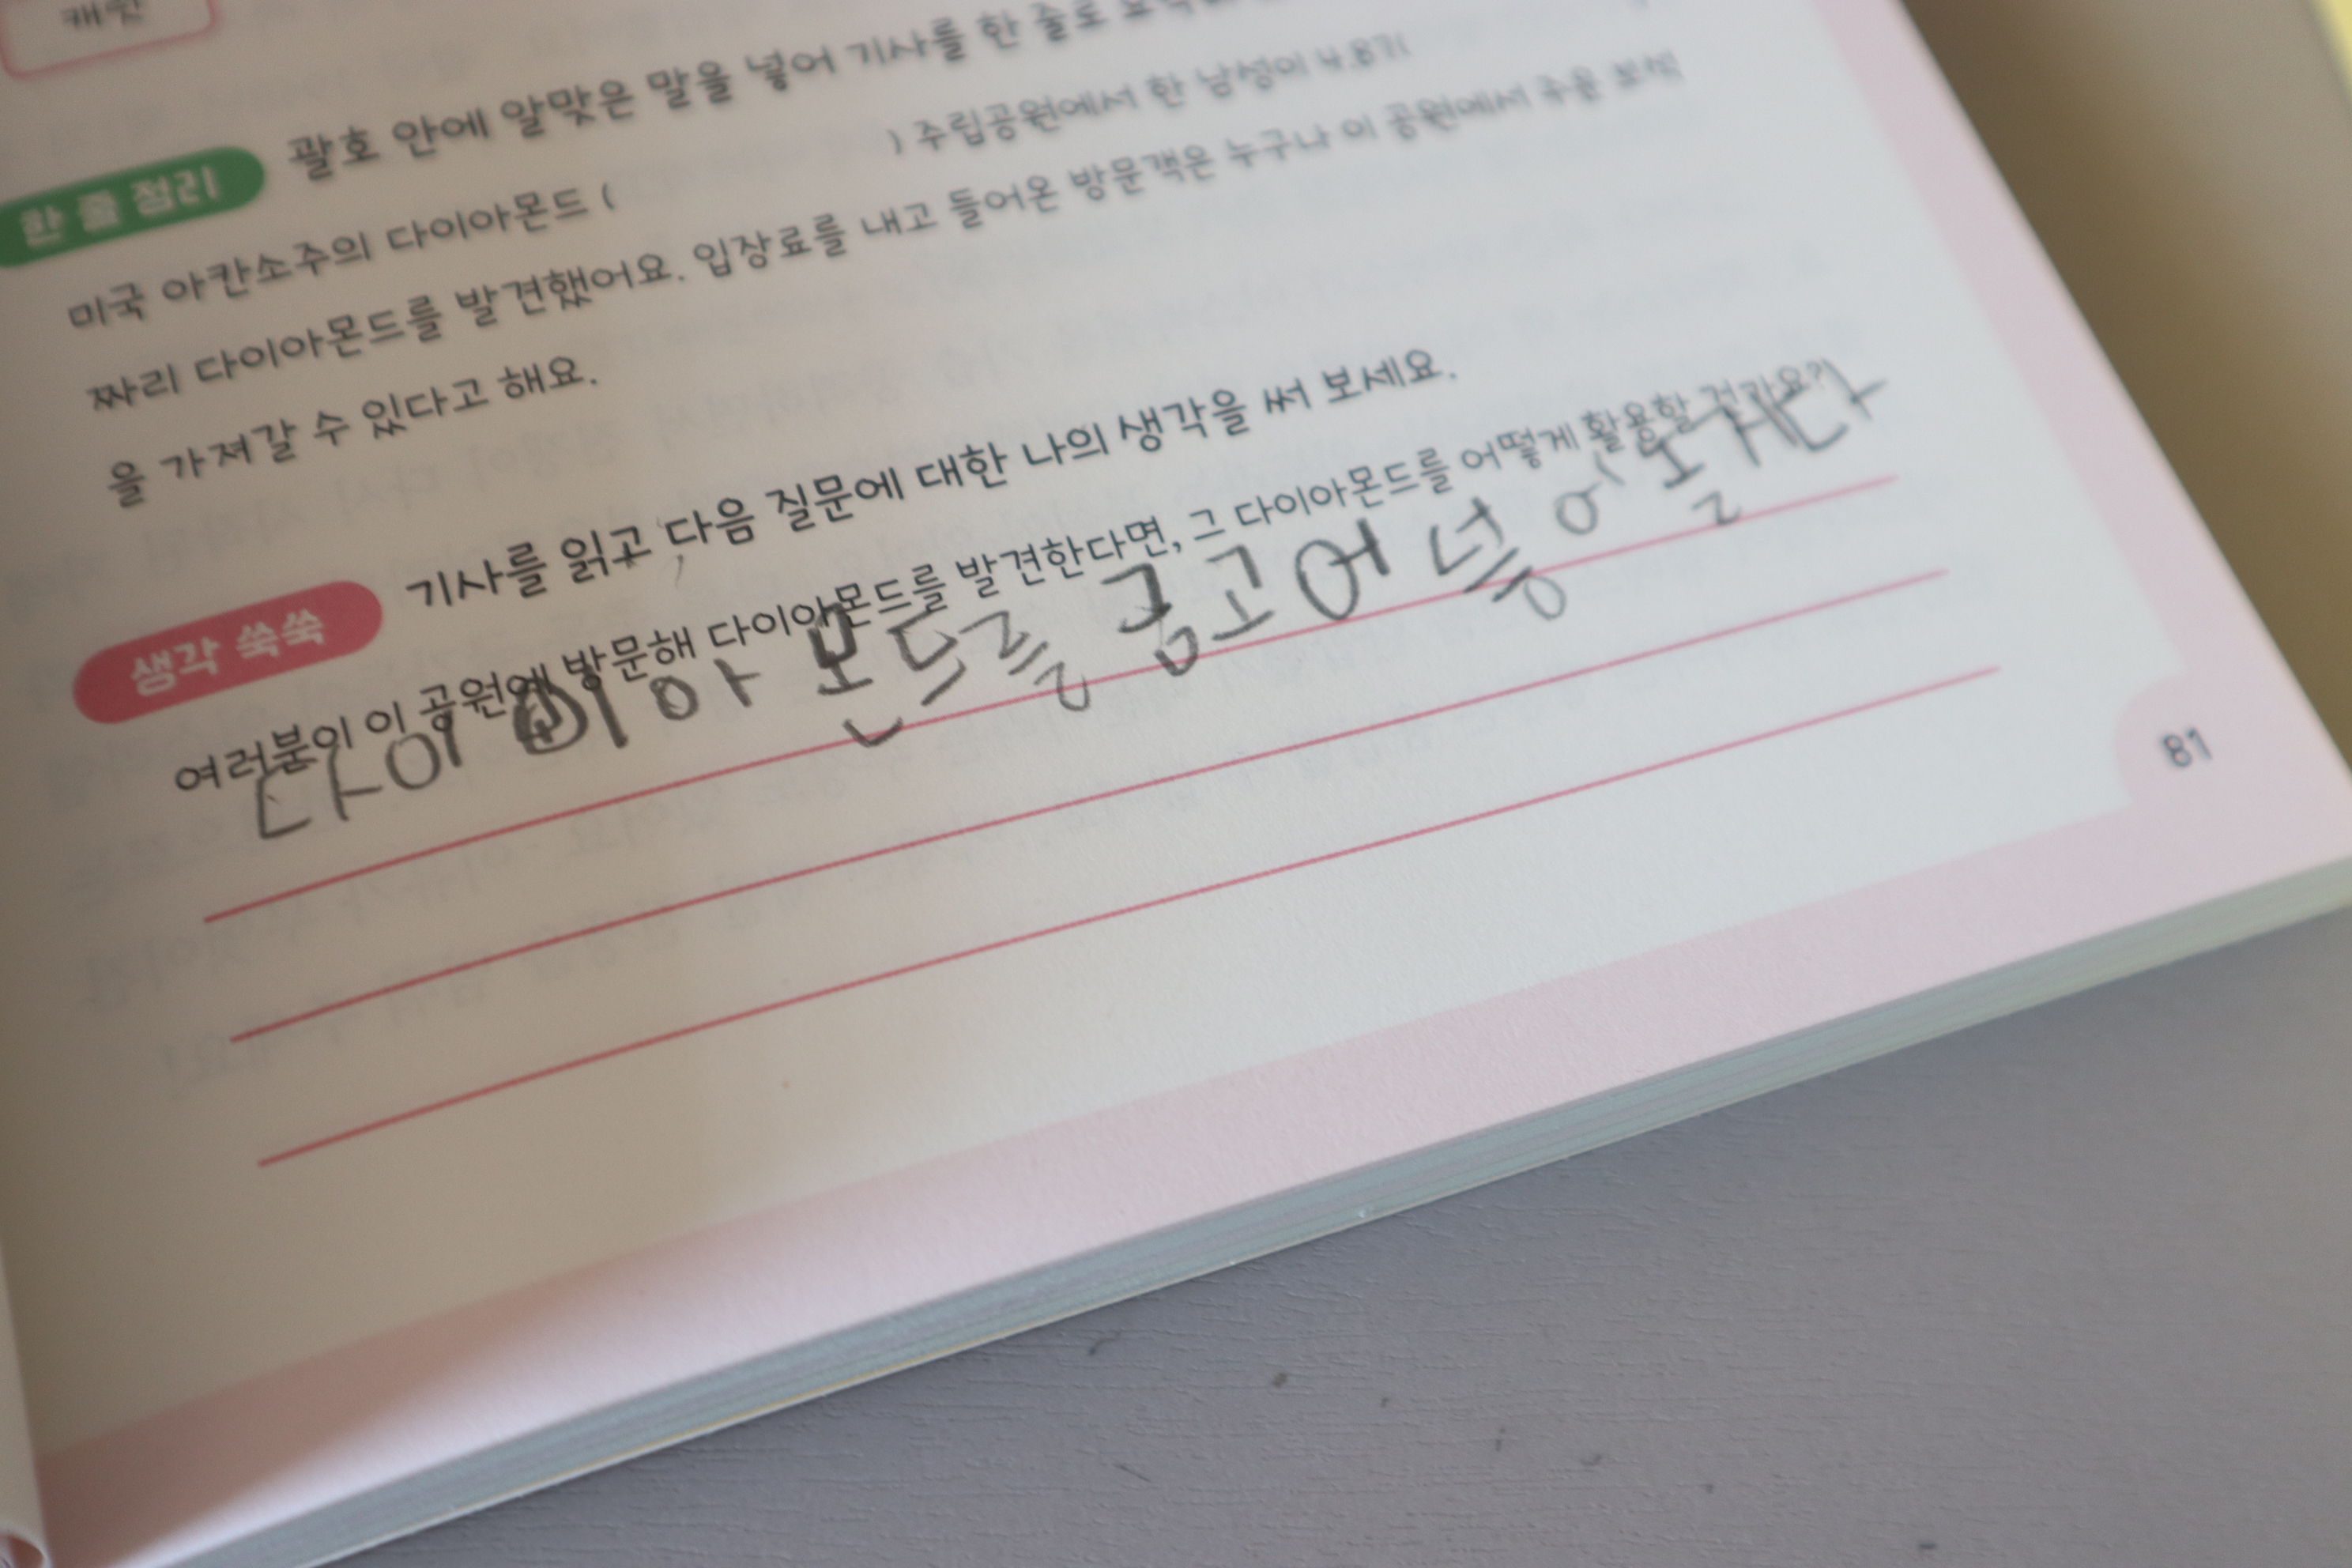 캐럿
한 줄 정리 괄호 안에 알맞은 말을 넣어 기사를 한 줄로
미국 아칸소주의 다이아몬드 ( ) 주립공원에서 한 남성이 4.87(
짜리 다이아몬드를 발견했어요. 입장료를 내고 들어온 방문객은 누구나 이 공원에서 주운 보석
을 가져갈 수 있다고 해요.
생각 쑥쑥 기사를 읽고 다음 질문에 대한 나의 생각을 써 보세요.
여러분이 이 공원에 방문해 다이아몬드를 발견한다면, 그 다이아몬드를 어떻게 활용할 건가요?
다이 아몬드를
81